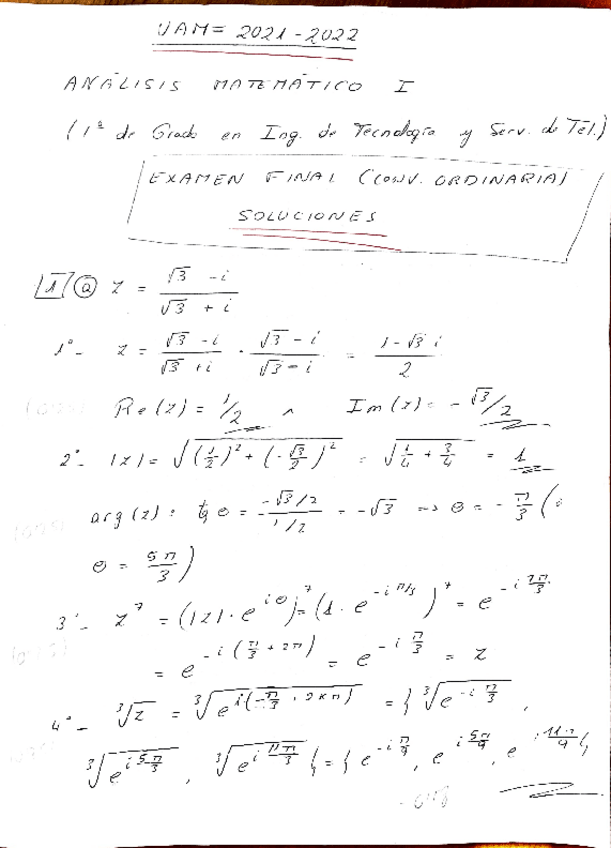 UAM = 2021-2022
ANÁLISIS MATEMÁTICO I
(1º de Grado en Ing. de Tecnología y Serv. de Tel.)
EXAMEN FINAL (CONV. ORDINARIA)
SOLUCIONES
1 a z = (√3 - i)/(√3 + i)
1º- z = (√3 - i)/(√3 + i) · (√3 - i)/(√3 - i) = (1 - √3 i)/2
Re(z) = 1/2 ∧ Im(z) = -√3/2
2º- |z| = √((1/2)² + (-√3/2)²) = √(1/4 + 3/4) = 1
arg(z): tg θ = (-√3/2)/(1/2) = -√3 => θ = -π/3 (
θ = 5π/3)
3º- z⁷ = (|z|·e^{iθ})⁷ = (1·e^{-iπ/3})⁷ = e^{-i 7π/3}
= e^{-i(π/3 + 2π)} = e^{-i π/3} = z
4º- ∛z = ∛(e^{i(-π/3 + 2kπ)}) = {∛(e^{-i π/3}),
∛(e^{i 5π/3}), ∛(e^{i 11π/3})} = {e^{-i π/9}, e^{i 5π/9}, e^{i 11π/9}}